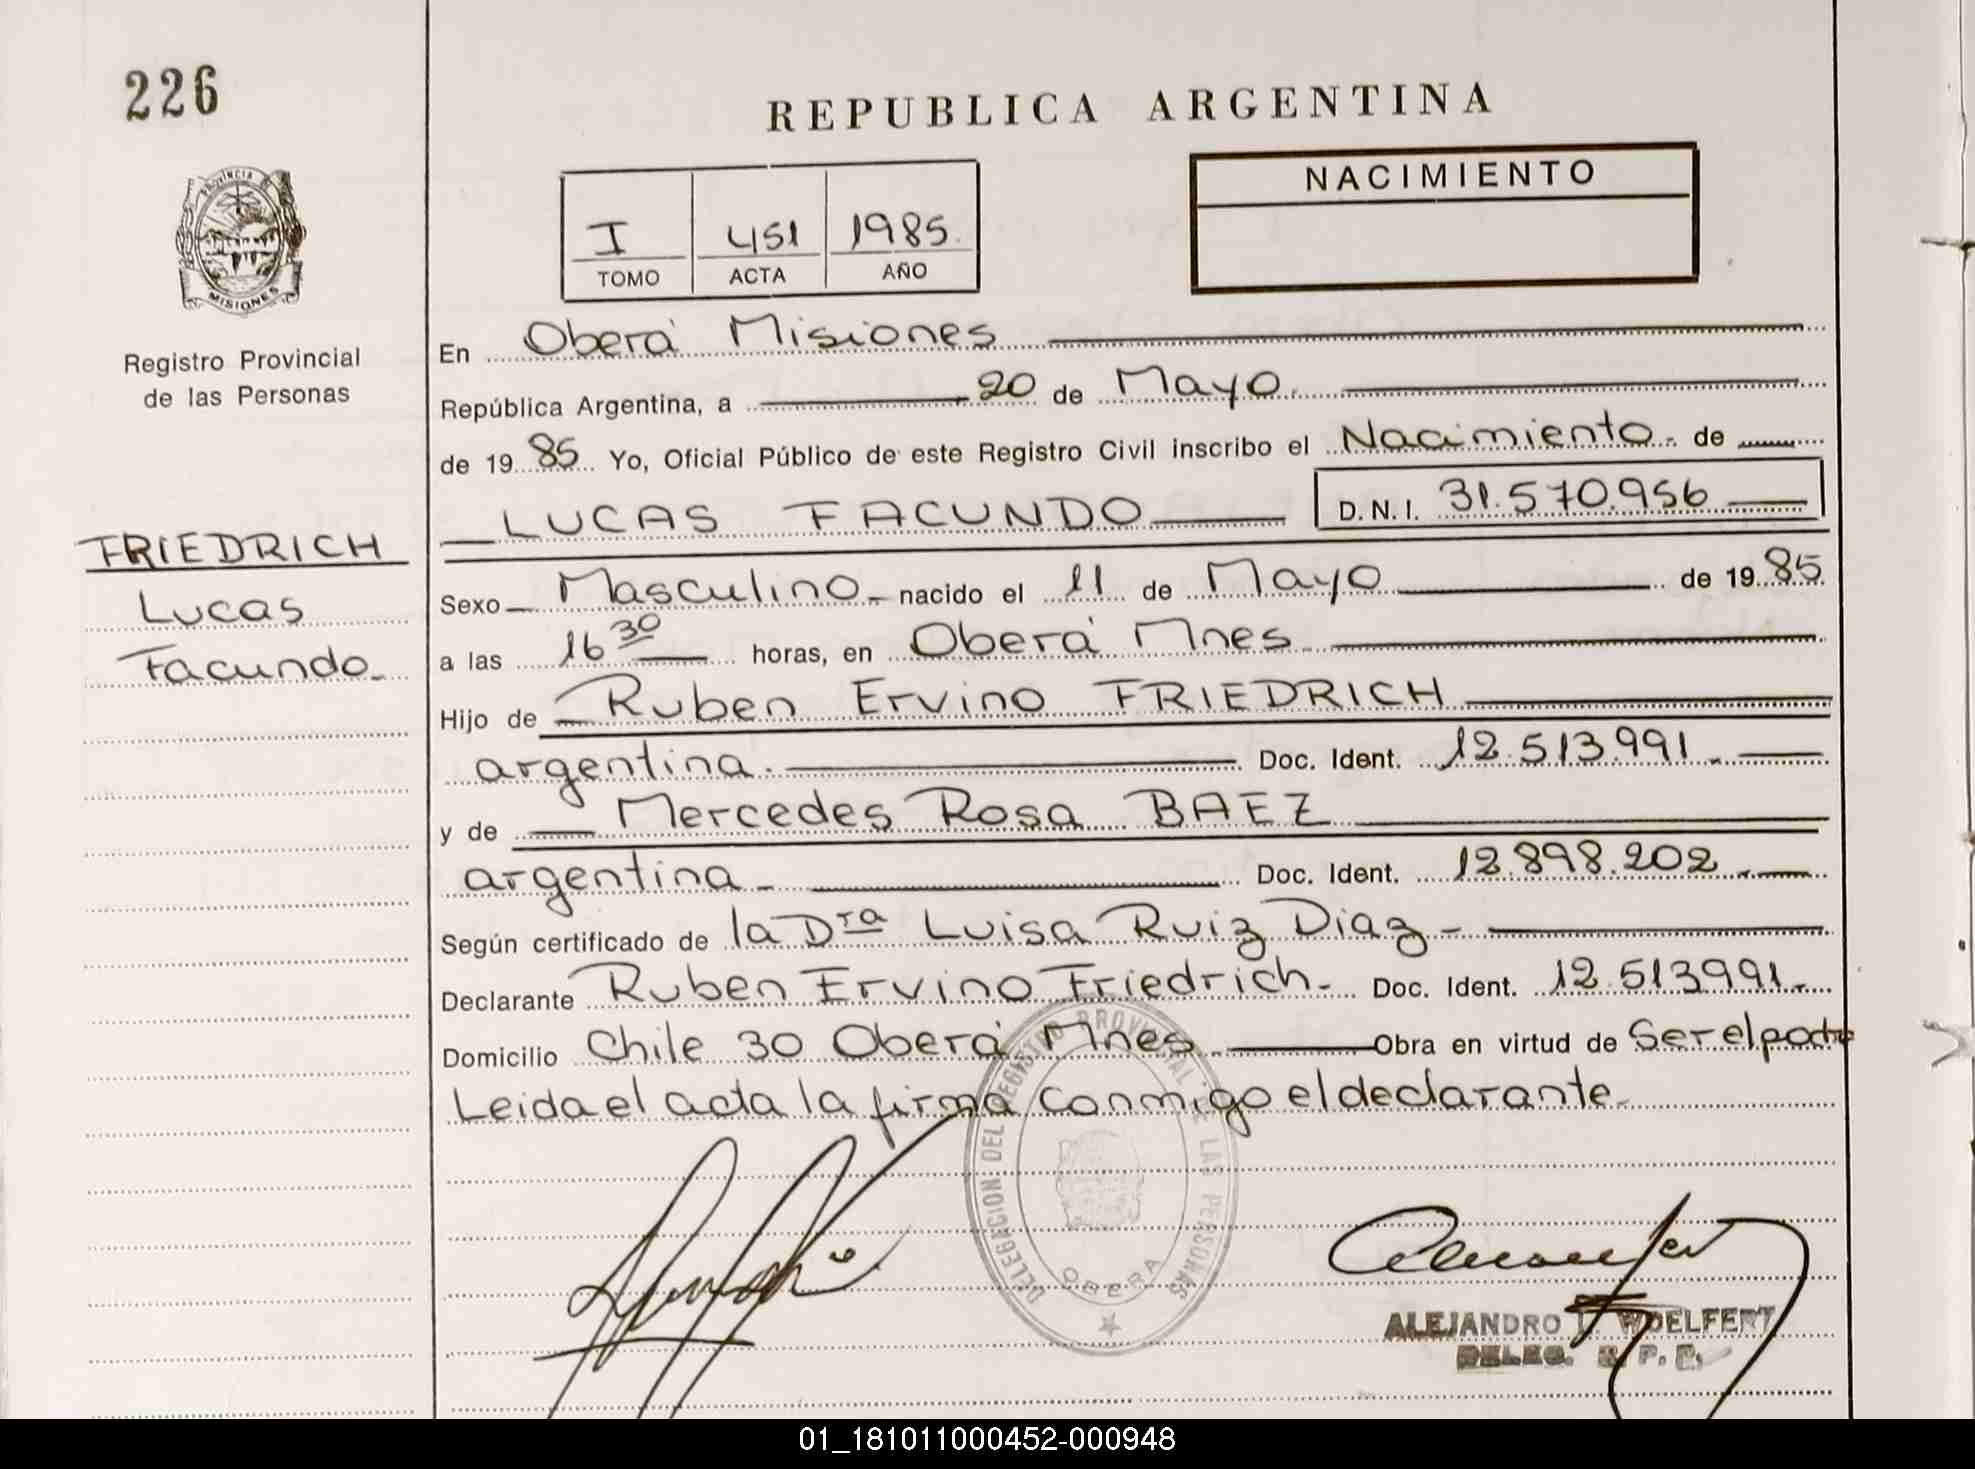 226
REPUBLICA ARGENTINA
NACIMIENTO
I 451 1985
TOMO ACTA AÑO
PROVINCIA DE
MISIONES
Registro Provincial
de las Personas
FRIEDRICH
Lucas
Facundo
En Oberá Misiones
República Argentina, a 20 de Mayo
de 19 85 Yo, Oficial Público de este Registro Civil inscribo el Nacimiento de
LUCAS FACUNDO D.N.I. 31.570.956
Sexo Masculino nacido el 11 de Mayo de 19 85
a las 16 30 horas, en Oberá Mnes
Hijo de Ruben Ervino FRIEDRICH
argentina. Doc. Ident. 12.513.991
y de Mercedes Rosa BAEZ
argentina Doc. Ident. 12.898.202
Según certificado de la Dra Luisa Ruiz Diaz
Declarante Ruben Ervino Friedrich Doc. Ident. 12.513991
Domicilio Chile 30 Oberá Mnes Obra en virtud de Ser el padre
Leida el acta la firma conmigo el declarante
DELEGACION DEL REGISTRO PROVINCIAL DE LAS PERSONAS
OBERA
ALEJANDRO WOELFERT
DELEG. R. P. P.
01_181011000452-000948